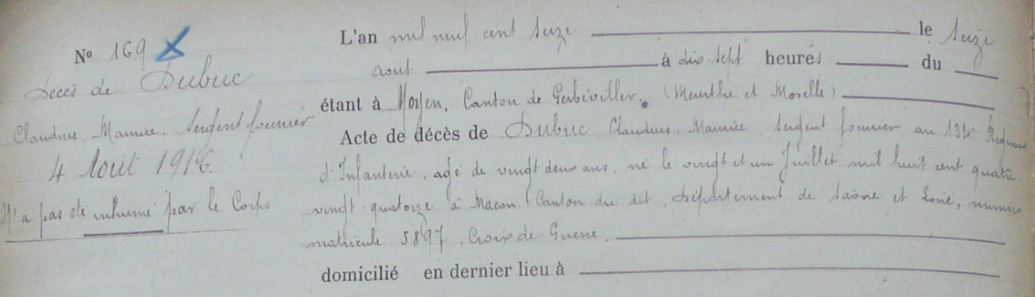 N° 169
Décès de Dubuc
Claudius, Maurice. Sergent fourrier
4 Aout 1916.
N'a pas été inhumé par le Corps
L'an mil neuf cent seize le seize
aout à dix sept heures du
étant à Moyen, Canton de Gerbéviller. (Meurthe et Moselle)
Acte de décès de Dubuc, Claudius, Maurice, Sergent fourrier au 134e Régiment
d'Infanterie, agé de vingt deux ans, né le vingt et un Juillet mil huit cent quatre
vingt quatorze à Macon, Canton du dit, département de Saone et Loire, numéro
matricule 5897, Croix de Guerre.
domicilié en dernier lieu à